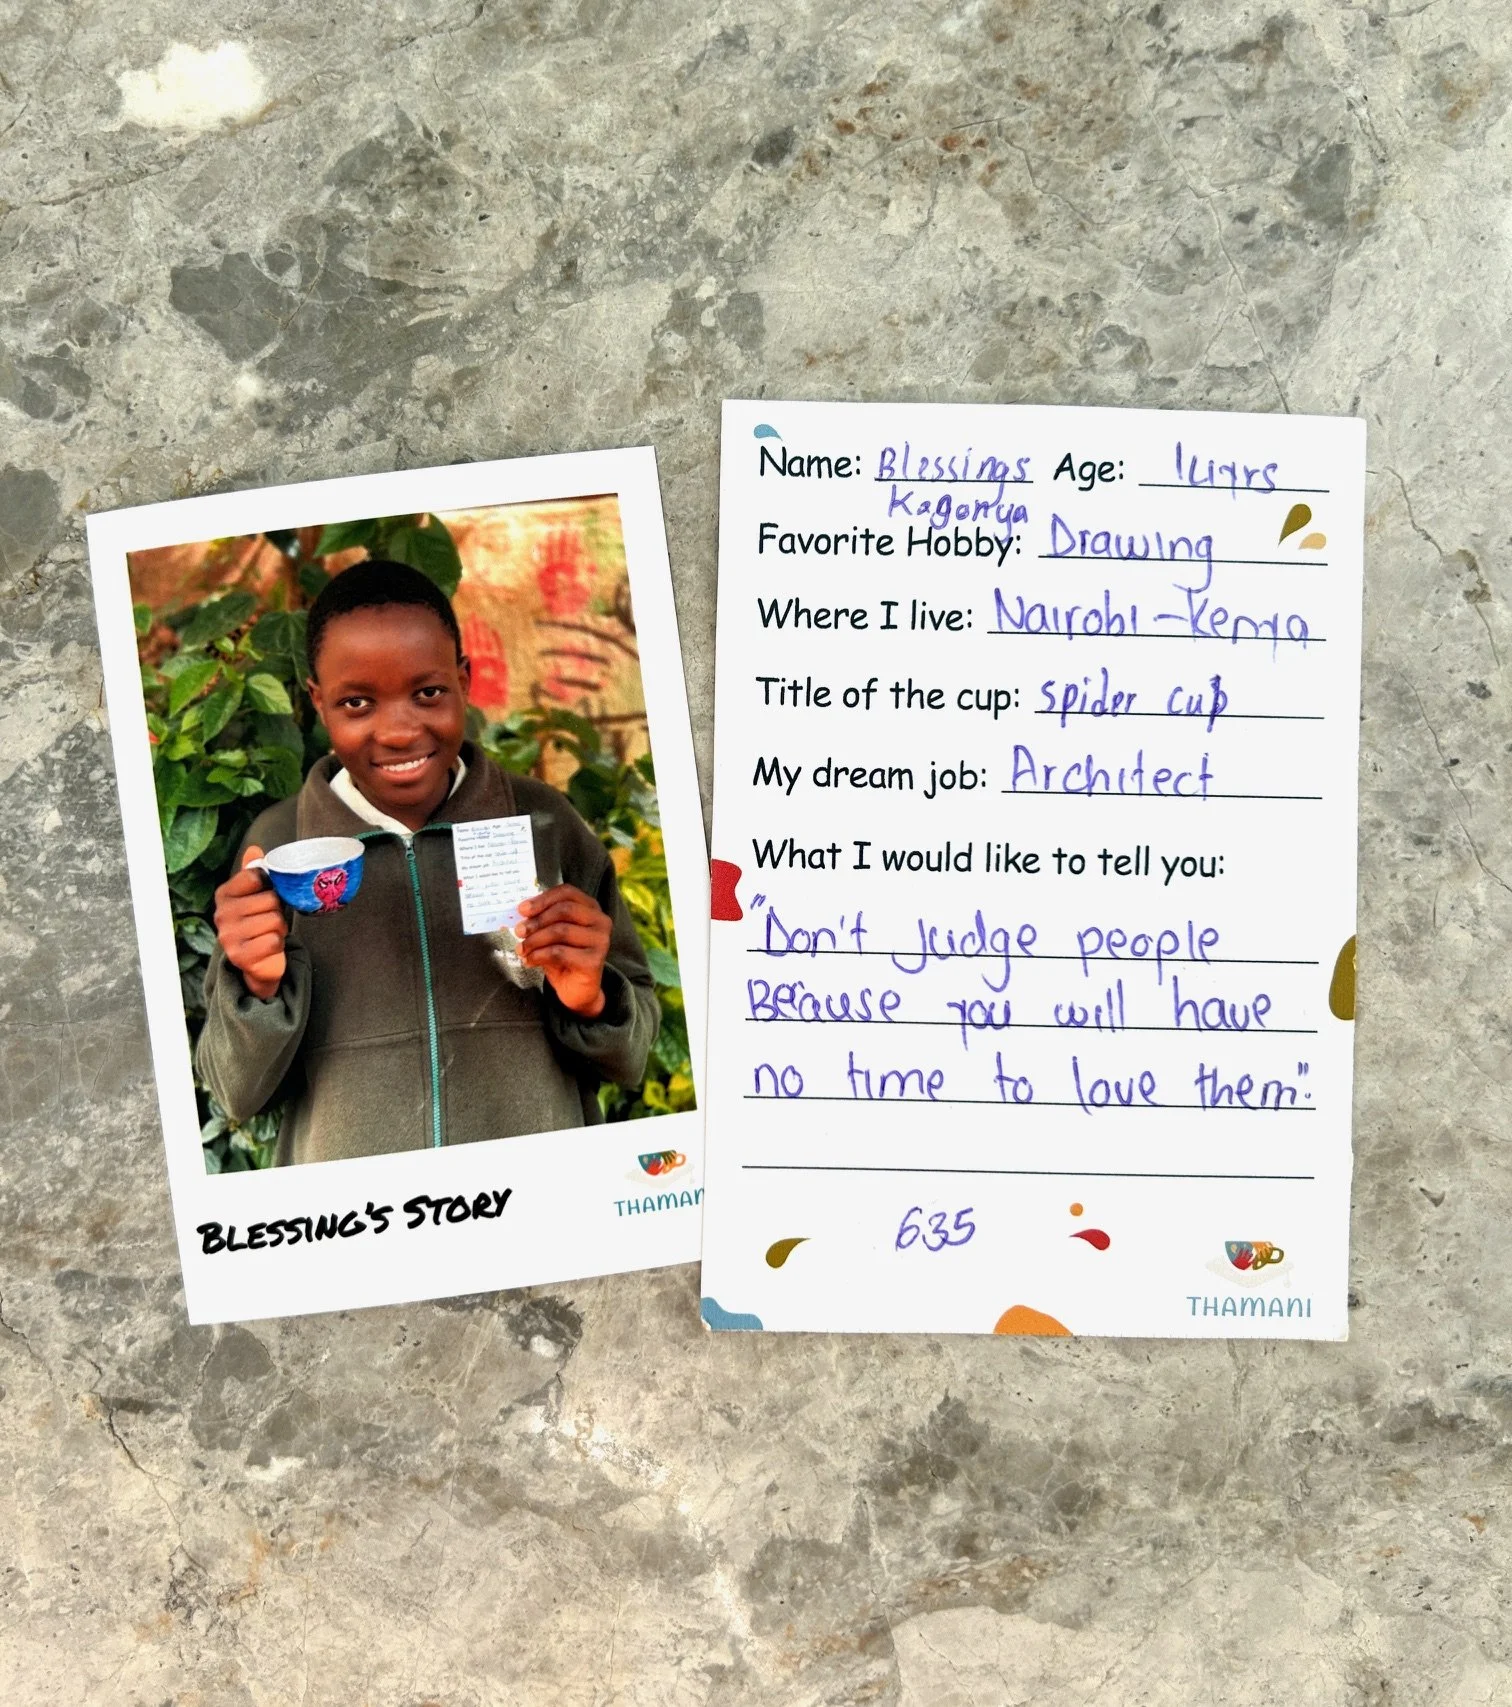 BLESSING'S STORY
THAMAN
Name: Blessings Age: 14yrs
Kagonya
Favorite Hobby: Drawing
Where I live: Nairobi - Kenya
Title of the cup: spider cup
My dream job: Architect
What I would like to tell you:
"Don't judge people
Because you will have
no time to love them".
635
THAMANI